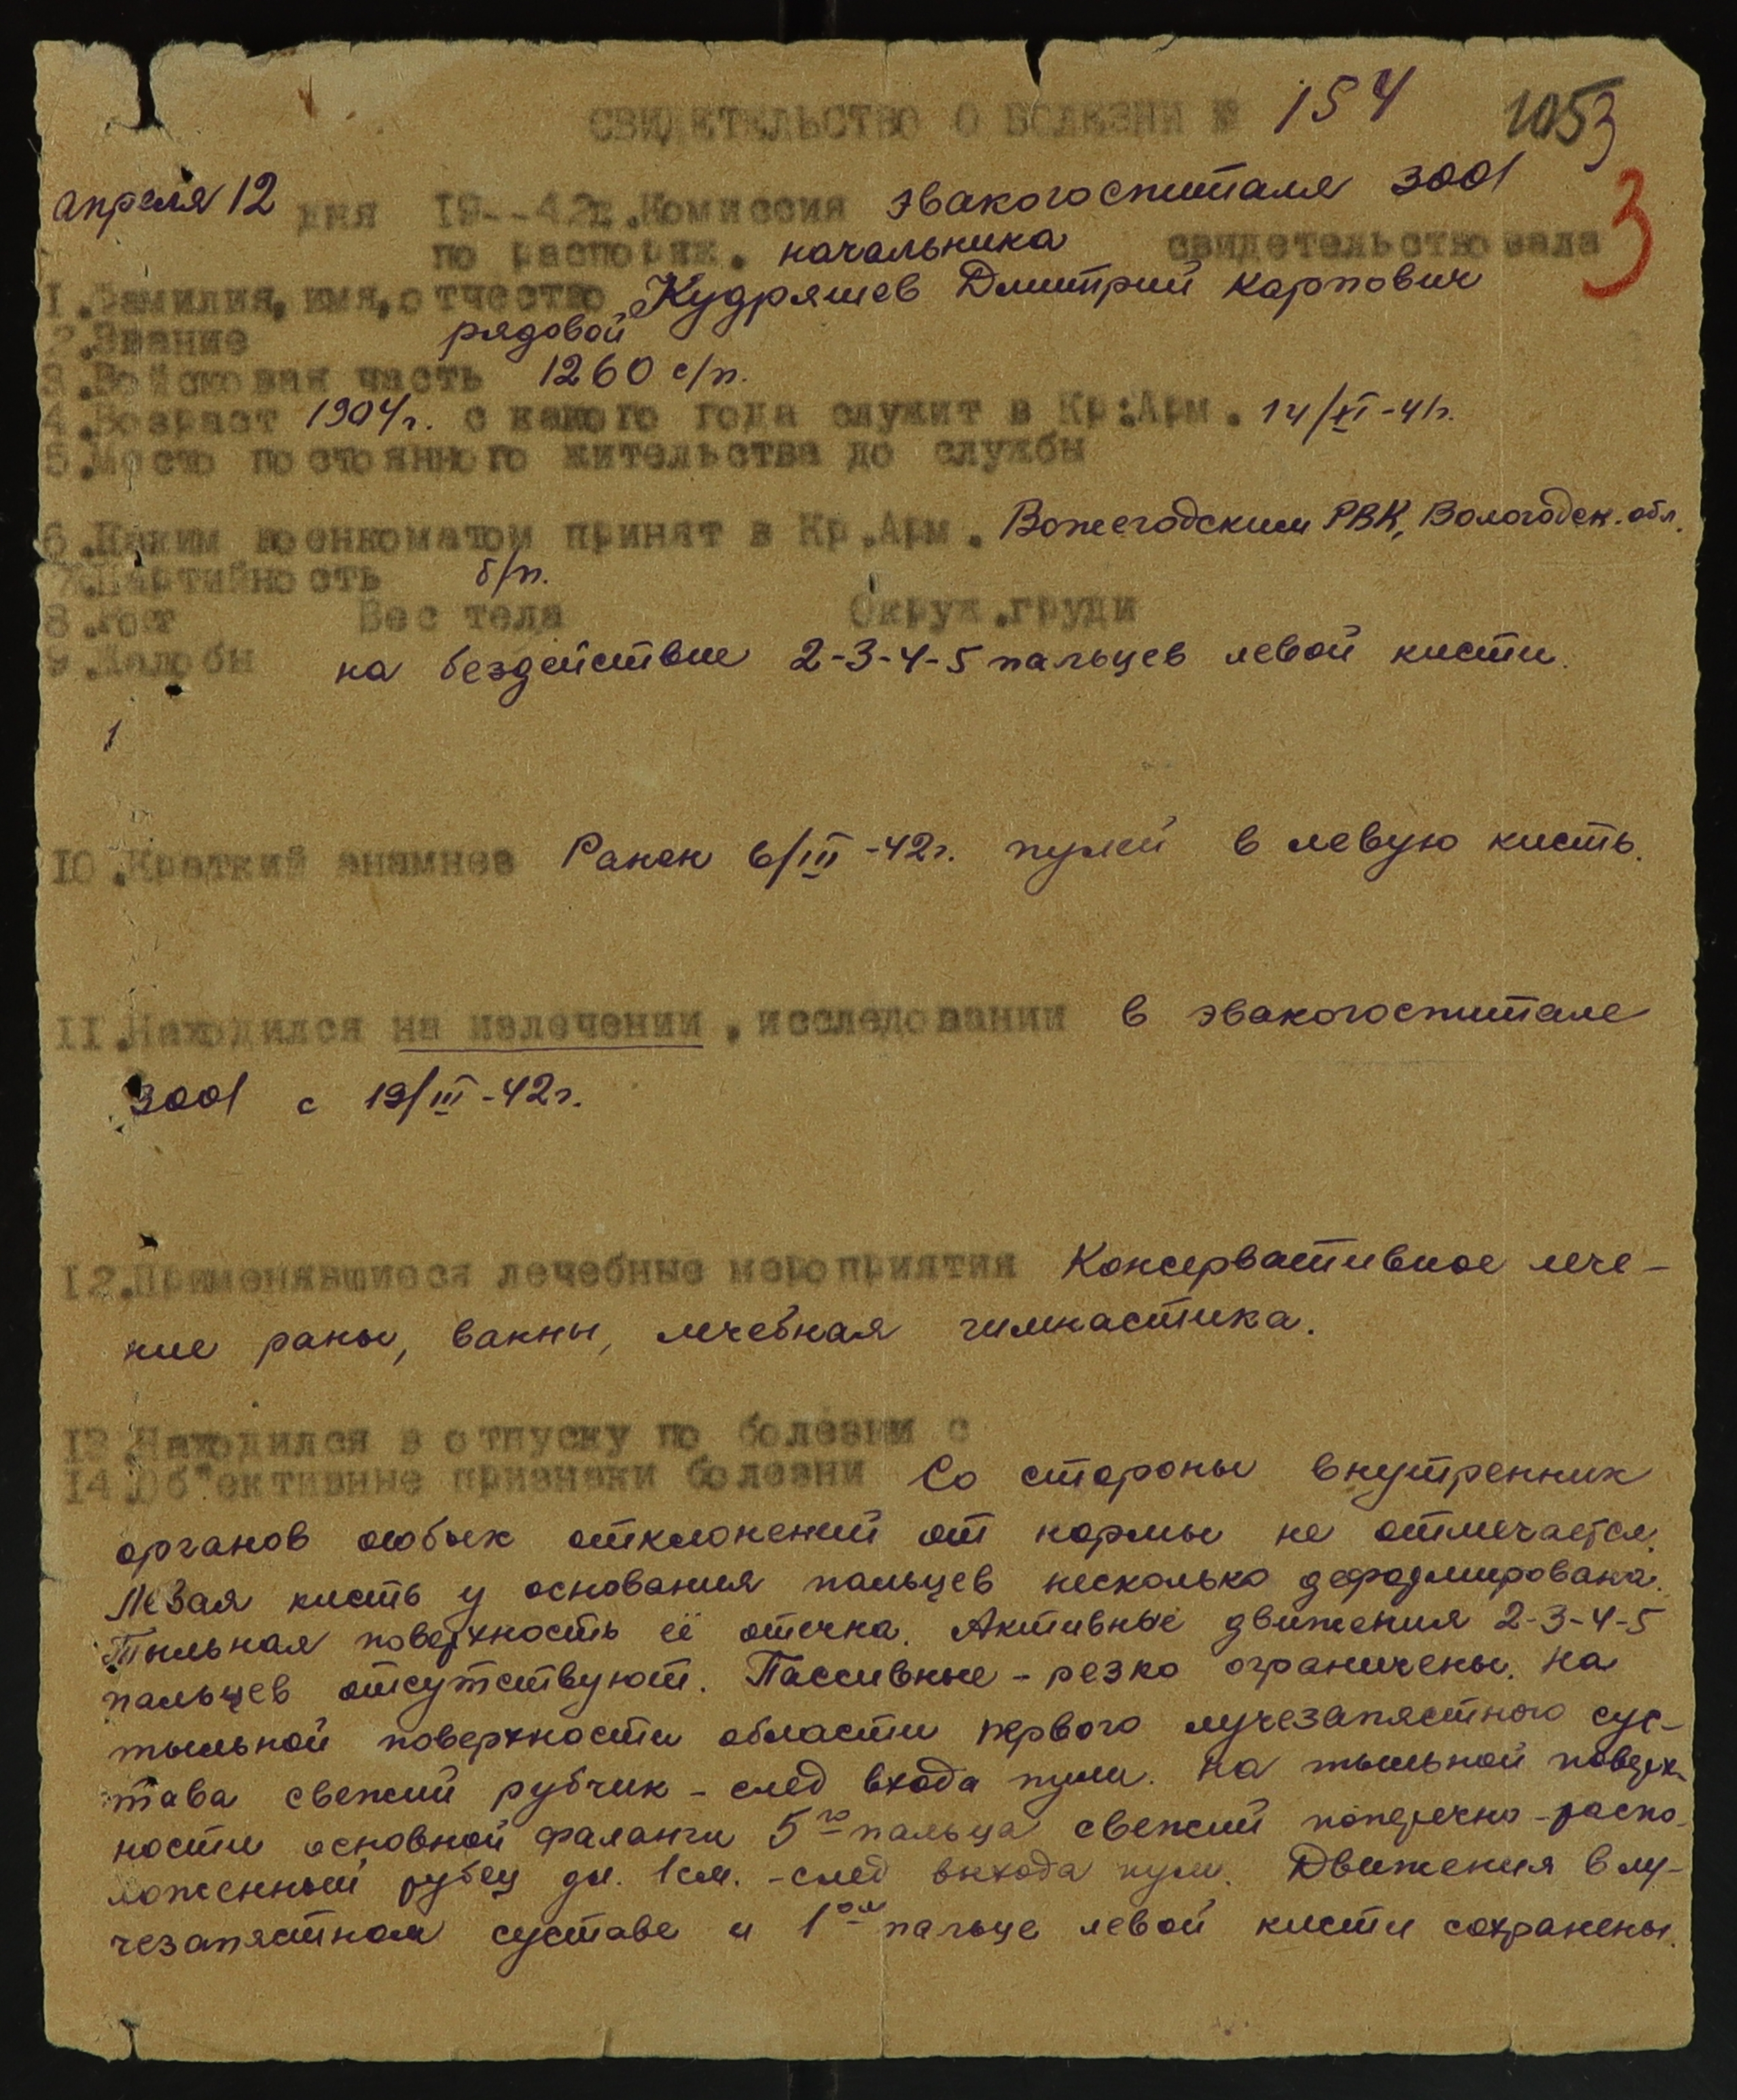 СВИДЕТЕЛЬСТВО О БОЛЕЗНИ № 154 1053
3
апреля 12 дня 19--42г. Комиссия эвакогоспиталя 3001
по распоряж. начальника свидетельствовала
1. Фамилия, имя, отчество Кудряшев Дмитрий Карпович
2. Звание рядовой
3. Войсковая часть 1260 с/п.
4. Возраст 1904г. с какого года служит в Кр:Арм. 14/XI-41г.
5. Место постоянного жительства до службы
6. Каким военкоматом принят в Кр.Арм. Вожегодским РВК, Вологодск. обл.
7. Партийность б/п.
8. Рост Вес тела Окруж.груди
9. Жалобы на бездействие 2-3-4-5 пальцев левой кисти.
10. Краткий анамнез Ранен 6/III-42г. пулей в левую кисть.
11. Находился на излечении, исследовании в эвакогоспитале
3001 с 19/III-42г.
12. Применявшиеся лечебные мероприятия Консервативное лече-
ние раны, ванны, лечебная гимнастика.
13. Находился в отпуску по болезни с
14. Об"ективные признаки болезни Со стороны внутренних
органов особых отклонений от нормы не отмечается.
Левая кисть у основания пальцев несколько деформирована.
Тыльная поверхность её отечна. Активные движения 2-3-4-5
пальцев отсутствуют. Пассивные - резко ограничены. На
тыльной поверхности области первого лучезапястного сус-
тава свежий рубчик - след входа пули. На тыльной поверх-
ности основной фаланги 5го пальца свежий поперечно-распо-
ложенный рубец дл. 1см. - след выхода пули. Движения в лу-
чезапястном суставе и 1ом пальце левой кисти сохранены.